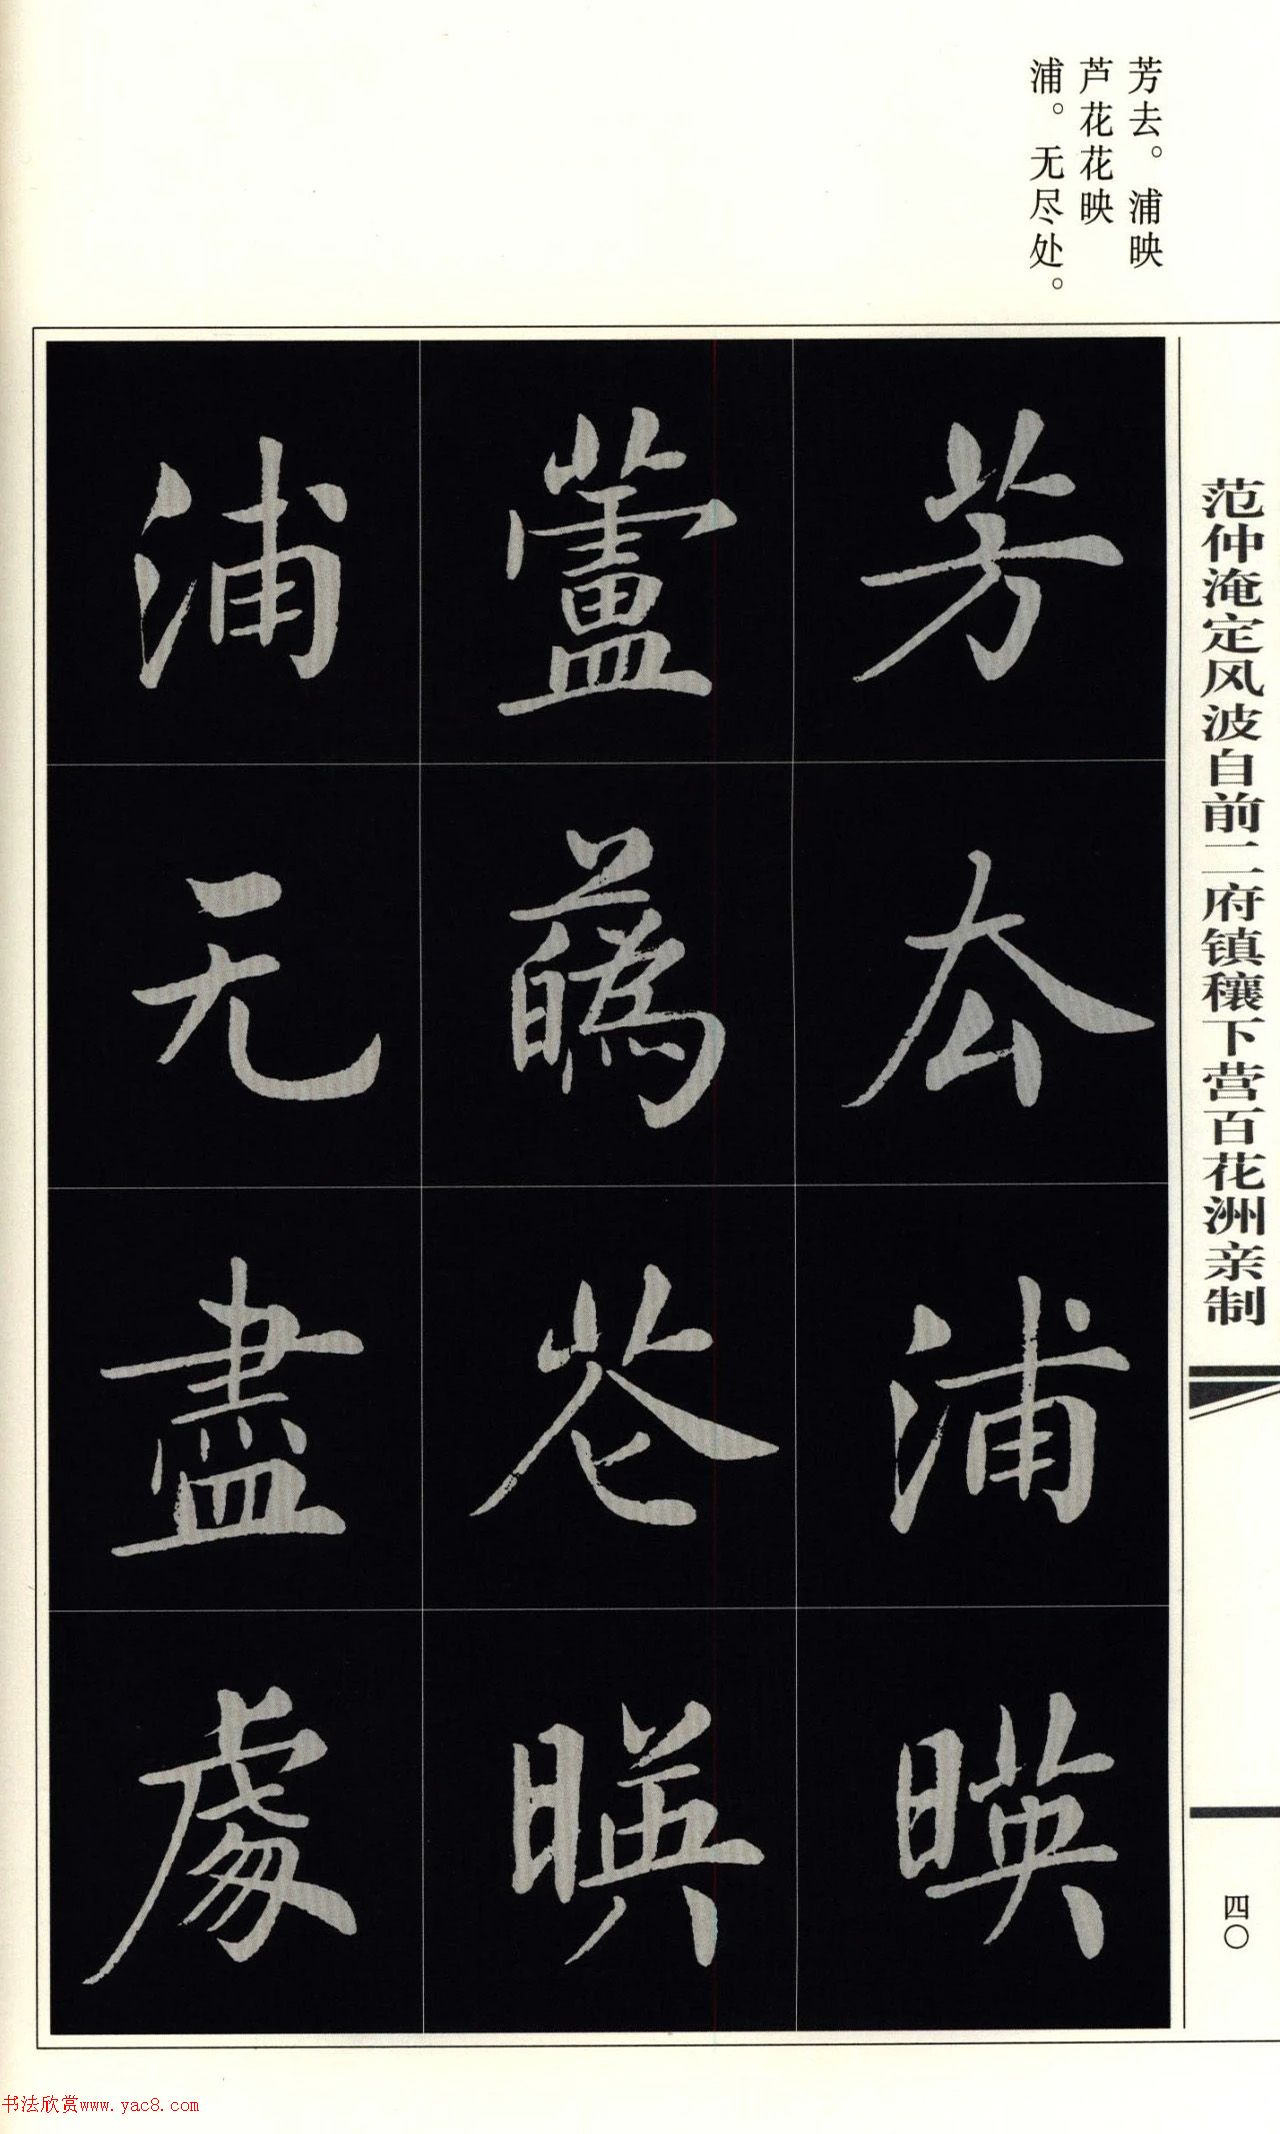 芳去。浦映
芦花花映
浦。无尽处。
范仲淹定风波自前二府镇穰下营百花洲亲制
芳去浦暎
蘆蘤花暎
浦无盡處
四〇
书法欣赏www.yac8.com